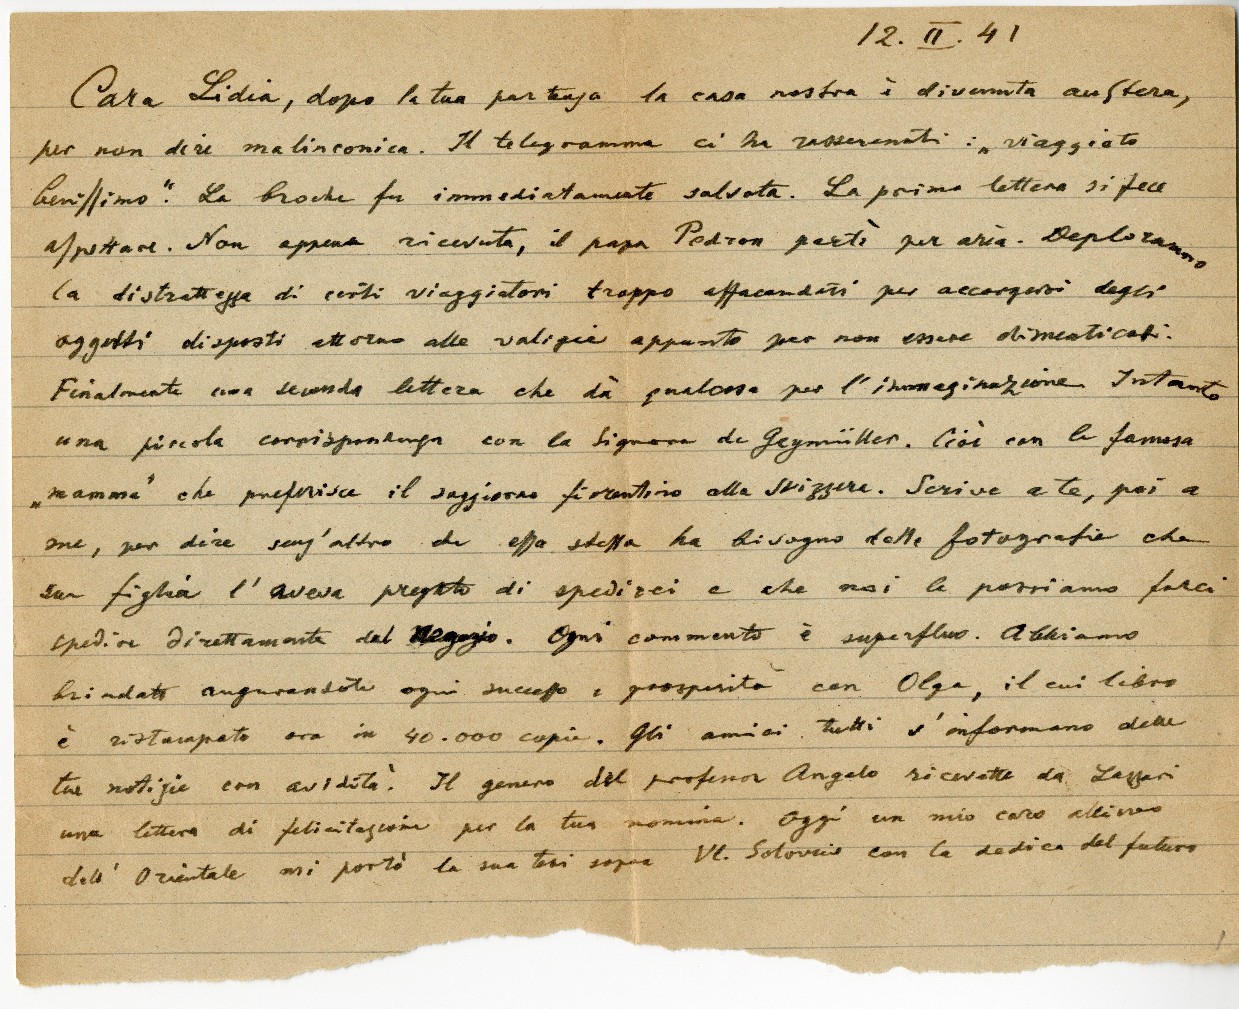 12. II. 41
Cara Lidia, dopo la tua partenza la casa nostra è divenuta austera,
per non dire malinconica. Il telegramma ci ha rasserenati: „viaggiato
benissimo“. La broche fu immediatamente salvata. La prima lettera si fece
aspettare. Non appena ricevuta, il papa Pedron partì per aria. Deploranno
la distrattezza di certi viaggiatori troppo affacendati per accorgersi degli
oggetti disposti attorno alle valigie appunto per non essere dimenticati.
Finalmente una seconda lettera che dà qualcosa per l'immaginazione. Intanto
una piccola corrispondenza con la Signora de Geymüller. Cioè con la famosa
„mamma“ che preferisce il soggiorno fiorentino alla Svizzera. Scrive a te, poi a
me, per dire senz'altro che essa stessa ha bisogno delle fotografie che
sua figlia l'aveva pregato di spedirci e che noi le possiamo farci
spedire direttamente dal Negozio. Ogni commento è superfluo. Abbiamo
brindato augurandote ogni successo e prosperità con Olga, il cui libro
è ristampato ora in 40.000 copie. Gli amici tutti s'informano delle
tue notizie con avidità. Il genero del professor Angelo ricevette da Lazzari
una lettera di felicitazione per la tua nomina. Oggi un mio caro allievo
dell'Orientale mi portò la sua tesi sopra Vl. Soloviev con la dedica del futuro